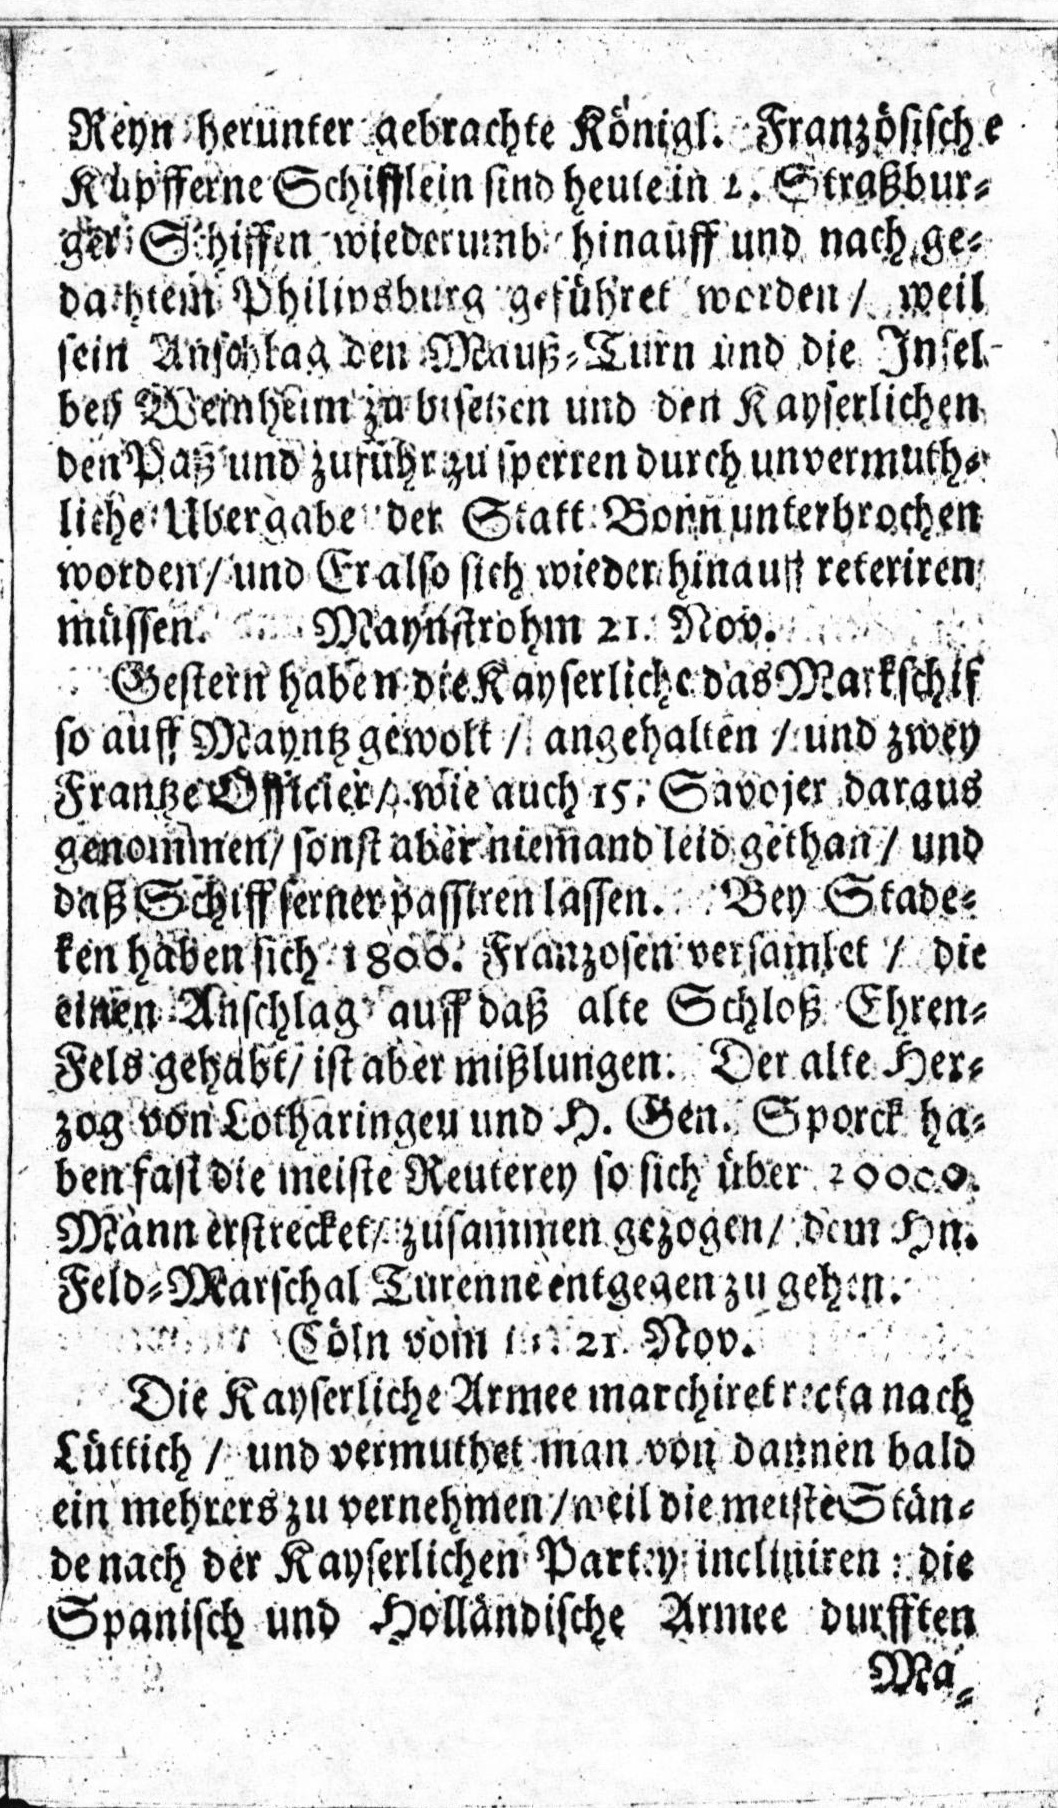 Reyn herunter gebrachte Königl. Französische
Küpfferne Schifflein sind heute in 2. Straßbur-
ger Schiffen wiederumb hinauff und nach ge-
dachtem Philipsburg geführet worden / weil
sein Anschlag den Mauß-Turn und die Insel
bey Weinheim zu besetzen und den Kayserlichen
den Paß und zufuhr zu sperren durch unvermuth-
liche Ubergabe der Statt Bonn unterbrochen
worden / und Er also sich wieder hinauff reteriren
müssen. Maynstrohm 21. Nov.
Gestern haben die Kayserliche das Markschif
so auff Mayntz gewolt / angehalten / und zwey
Frantze Officier / wie auch 15. Savojer daraus
genommen / sonst aber niemand leid gethan / und
daß Schiff ferner passiren lassen. Bey Stade-
ken haben sich 1800. Franzosen versamlet / die
einen Anschlag auff daß alte Schloß Ehren-
Fels gehabt / ist aber mißlungen. Der alte Her-
zog von Lotharingeu und H. Gen. Sporck ha-
ben fast die meiste Reuterey so sich über 20000.
Mann erstrecket / zusammen gezogen / dem Hn.
Feld-Marschal Turenne entgegen zu gehen.
Cöln vom 21. Nov.
Die Kayserliche Armee marchiret recta nach
Lüttich / und vermuthet man von dannen bald
ein mehrers zu vernehmen / weil die meiste Stän-
de nach der Kayserlichen Partey incliniren : die
Spanisch und Holländische Armee durfften
Ma-